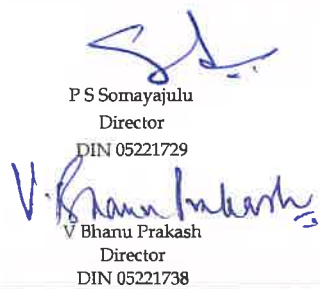 P S Somayajulu
Director
DIN 05221729
V. Bhanu Prakash
V Bhanu Prakash
Director
DIN 05221738